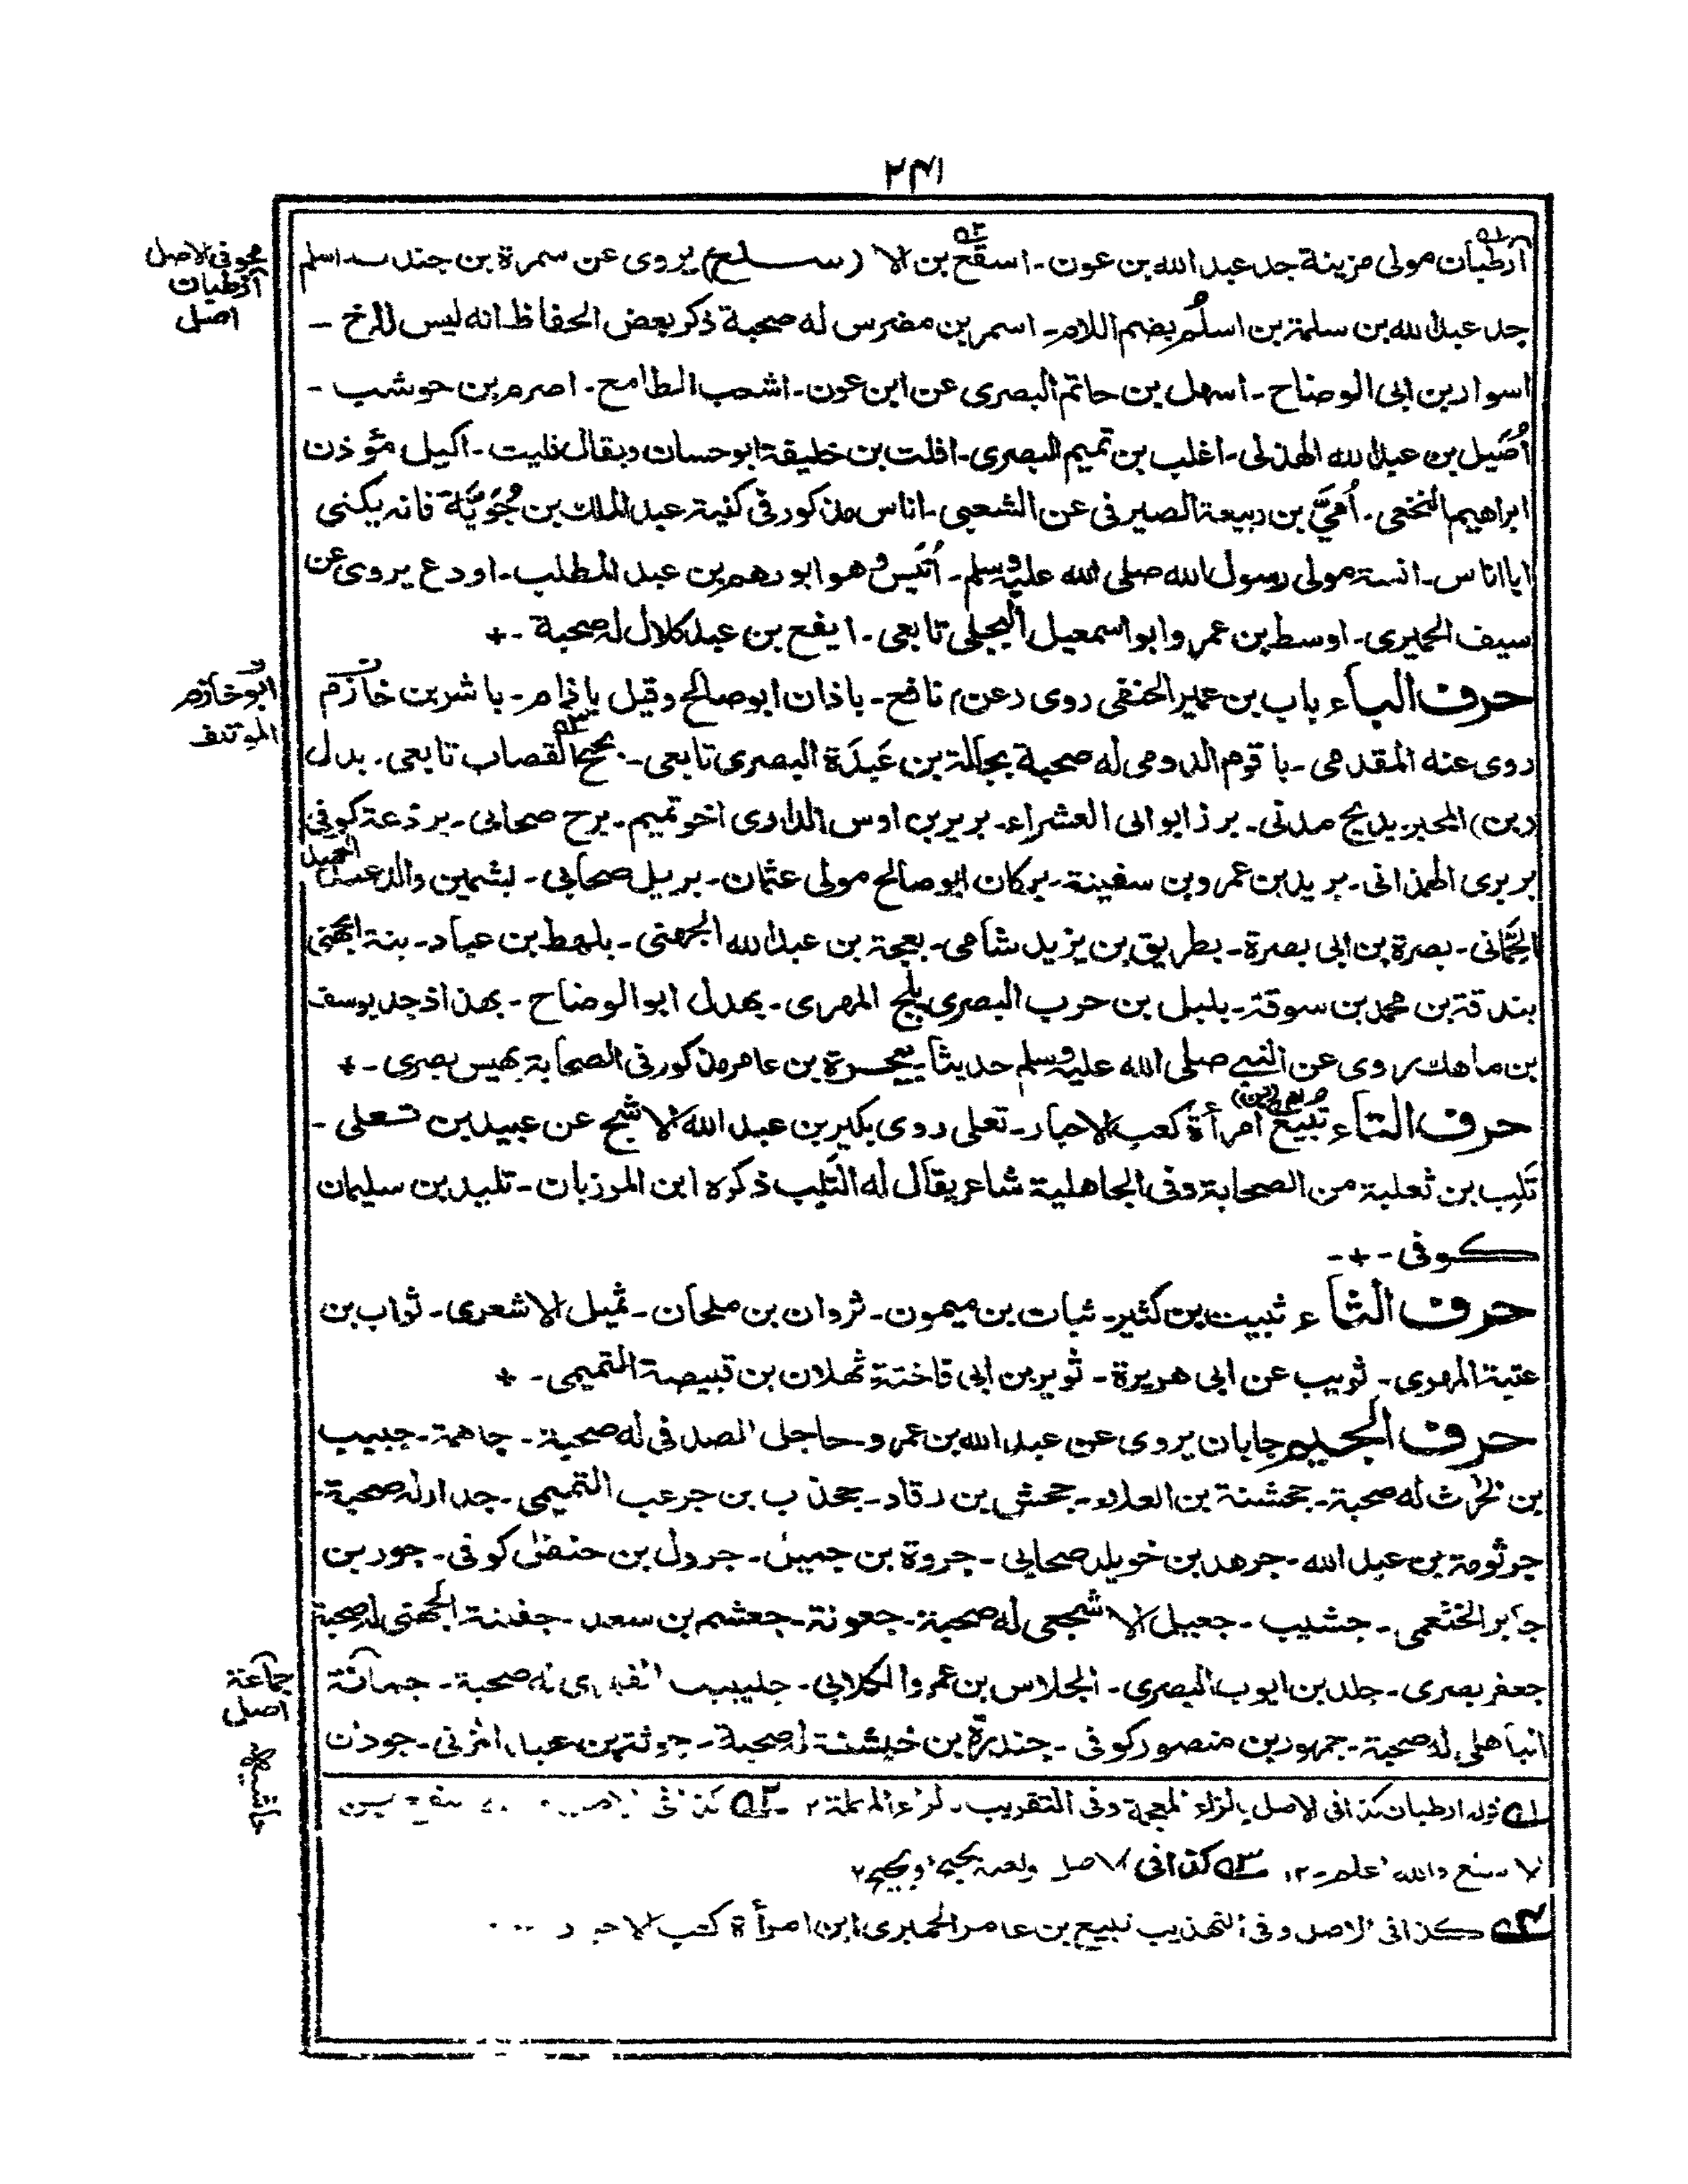 ٢٤١
ارطبان مولى مزينة جد عبد الله بن عون ـ اسقع بن الا (سلع) يروى عن سمرة بن جندب ـ اسلم
جد عبد الله بن سلمة بن اسلُم بضم اللام ـ اسمر بن مضرس له صحبة ذكر بعض الحفاظ انه ليس للرخ ـ
اسوار بن ابى الوضاح ـ اسهل بن حاتم البصرى عن ابن عون ـ اشعب الطامع ـ اصرم بن حوشب ـ
أُصَيل بن عبد الله الهذلى ـ اغلب بن تميم البصرى ـ افلت بن خليفة ابو حسان ويقال فليت ـ اكيل مؤذن
ابراهيم النخعى ـ أُمَيّ بن ربيعة الصيرفى عن الشعبى ـ اناس مذكور فى كنية عبد الملك بن جُوَيَّة فانه يكنى
ابا اناس ـ انسة مولى رسول الله صلى الله عليه وسلم ـ أُنَيس وهو ابو رهم بن عبد المطلب ـ اودع يروى عن
سيف الحميرى ـ اوسط بن عمر وابو اسمعيل البجلى تابعى ـ ايفع بن عبد كلال له صحبة ـ +
حرف الباء باب بن عمير الحنفى روى (عن) نافع ـ باذان ابو صالح وقيل باذام ـ باشر بن خازم
روى عنه المقدمى ـ باقوم الدومى له صحبة بجالة بن عَبَدَة البصرى تابعى ـ بحيح القصاب تابعى ـ بدل
(بن) المحبر ـ بديح مدنى ـ برز ابو ابى العشراء ـ برير بن اوس الدارى اخو تميم ـ برح صحابى ـ برذعة كوفى
بربرى الهمذانى ـ بريد بن عمرو بن سفينة ـ بركان ابو صالح مولى عثمان ـ بريل صحابى ـ بشمين والد عبد الحميد
الحِمَّانى ـ بصرة بن ابى بصرة ـ بطريق بن يزيد شامى ـ بعجة بن عبد الله الجهنى ـ بلهط بن عباد ـ بنة الجهنى
بندقة بن محمد بن سوقة ـ بلبل بن حرب البصرى بلج المهرى ـ بهدل ابو الوضاح ـ بهذاذ جد يوسف
بن ماهك روى عن النبى صلى الله عليه وسلم حديثا ـ بيحرة بن عامر مذكور فى الصحابة بهيس بصرى ـ +
حرف التاء تبيع امرأة كعب الاحبار ـ تعلى روى بكير بن عبد الله الاشج عن عبيد بن تعلى ـ
تَلِب بن ثعلبة من الصحابة وفى الجاهلية شاعر يقال له التَلِب ذكره ابن المرزبان ـ تليد بن سليمان
كوفى ـ + ـ
حرف الثاء ثبيت بن كثير ـ ثبات بن ميمون ـ ثروان بن ملحان ـ ثميل الاشعرى ـ ثواب بن
عتبة المهرى ـ ثويب عن ابى هريرة ـ ثوير بن ابى فاختة ثهلان بن قبيصة التميمى ـ +
حرف الجيم جابان يروى عن عبد الله بن عمرو ـ حاجل الصدفى له صحبة ـ جاهمة ـ جبيب
بن الحرث له صحبة ـ جحشنة بن العلاء ـ جحش بن رقاد ـ جخذب بن جرعب التميمى ـ جدار له صحبة ـ
جرثومة بن عبد الله ـ جرهد بن خويلد صحابى ـ جروة بن جميل ـ جردل بن حنفى كوفى ـ جور بن
جابر الخثعمى ـ جشيب ـ جعيل الاشجعى له صحبة ـ جعونة ـ جعشم بن سعد ـ جفنة الجهنى له صحبة
جعفر بصرى ـ جلد بن ايوب البصرى ـ الجلاس بن عمرو الكلابى ـ جليبيب الفهرى له صحبة ـ جمانة
الباهلى له صحبة ـ جمهور بن منصور كوفى ـ جندرة بن خيشنة له صحبة ـ جوثة بن عبيد المزنى ـ جودان
محو فى الاصل
ارطبان
اصل
ابو خازم
المؤتلف
جماعة
اصل
حاشيه
قوله ارطبان كذا فى الاصل بالزاء المعجمة وفى التقريب ـ لراء المهملة ١٢ ـ كذا فى الاصل
الا سقع والله اعلم ـ ١٢ ـ كذا فى الاصل ولعله
كذا فى الاصل وفى التهذيب تبيع بن عامر الحميرى ابن امرأة كعب الاحبار